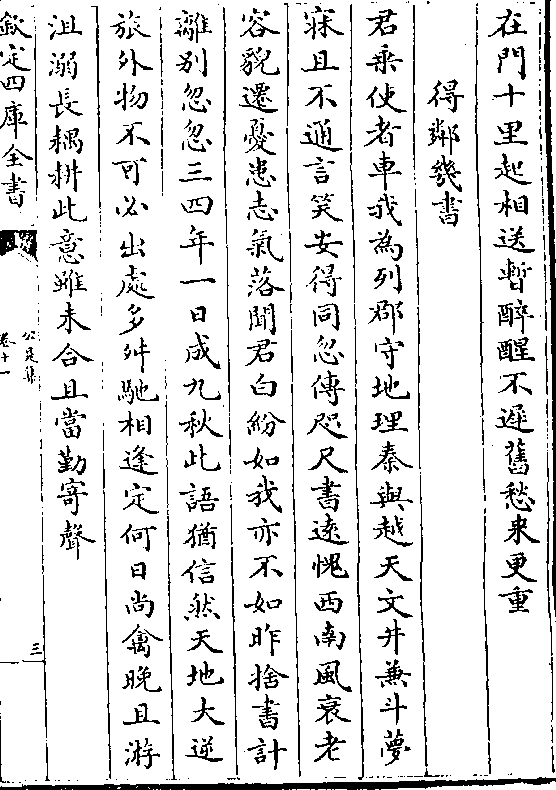 在門十里起相送暫醉醒不遲舊愁来更重
得鄰幾書
君乗使者車我為列郡守地理秦與越天文井兼斗夢
寐且不通言笑安得同忽傳咫尺書逺愧西南風衰老
容貌還憂患志氣落聞君白紛如我亦不如昨捨書計
離别忽忽三四年一日成九秋此語猶信然天地大逆
旅外物不可必出處多舛馳相逢定何日尚禽晚且游
沮溺長耦耕此意雖未合且當勤寄聲
欽定四庫全書
公是集
卷十一
三